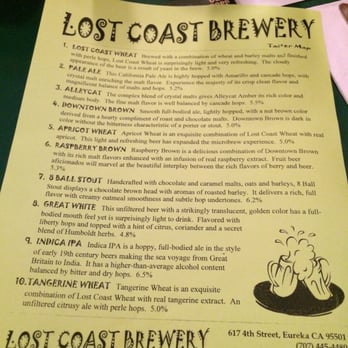 LOST COAST BREWERY
Taster Map
1. LOST COAST WHEAT Brewed with a combination of wheat and barley malts and finished
with perle hops, Lost Coast Wheat is surprisingly light and very refreshing. The cloudy
appearance of the beer is a result of yeast in the brew. 5.0%
2. PALE ALE This California Pale Ale is highly hopped with Amarillo and cascade hops, with
crystal malt enriching the malt flavor. Experience the majesty of its crisp clean flavor and
magnificent balance of malts and hops. 5.2%
3. ALLEYCAT The complex blend of crystal malts gives Alleycat Amber its rich color and
medium body. The fine malt flavor is well balanced by cascade hops. 5.5%
4. DOWNTOWN BROWN Smooth full-bodied ale, lightly hopped, with a nut brown color
derived from a hearty compliment of roast and chocolate malts. Downtown Brown is dark in
color without the bitterness characteristic of a porter or stout. 5.0%
5. APRICOT WHEAT Apricot Wheat is an exquisite combination of Lost Coast Wheat with real
apricot. This light and refreshing beer has expanded the microbrew experience. 5.0%
6. RASPBERRY BROWN Raspberry Brown is a delicious combination of Downtown Brown
with its rich malt flavors enhanced with an infusion of real raspberry extract. Fruit beer
aficionados will marvel at the beautiful interplay between the rich flavors of berry and beer.
7. 8 BALL STOUT Handcrafted with chocolate and caramel malts, oats and barleys, 8 Ball
Stout displays a chocolate brown head with aromas of roasted barley. It delivers a rich, full
flavor with creamy oatmeal smoothness and subtle hop undertones. 6.2%
8. GREAT WHITE This unfiltered beer with a strikingly translucent, golden color has a full-
bodied mouth feel yet is surprisingly light to drink. Flavored with
liberty hops and topped with a hint of citrus, coriander and a secret
blend of Humboldt herbs. 4.8%
9. INDICA IPA Indica IPA is a hoppy, full-bodied ale in the style
of early 19th century beers making the sea voyage from Great
Britain to India. It has a higher-than-average alcohol content
balanced by bitter and dry hops. 6.5%
10. TANGERINE WHEAT Tangerine Wheat is an exquisite
combination of Lost Coast Wheat with real tangerine extract. An
unfiltered citrusy ale with perle hops. 5.0%
LOST COAST BREWERY
617 4th Street, Eureka CA 95501
(707) 445-4480